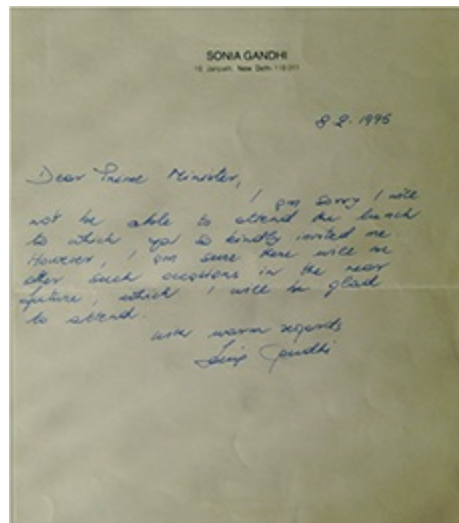 SONIA GANDHI
10 Janpath, New Delhi-110 011
8-2-1996
Dear Prime Minister,
I am sorry I will
not be able to attend the lunch
to which you so kindly invited me.
However, I am sure there will be
other such occasions in the near
future, which I will be glad
to attend.
With warm regards
Sonia Gandhi